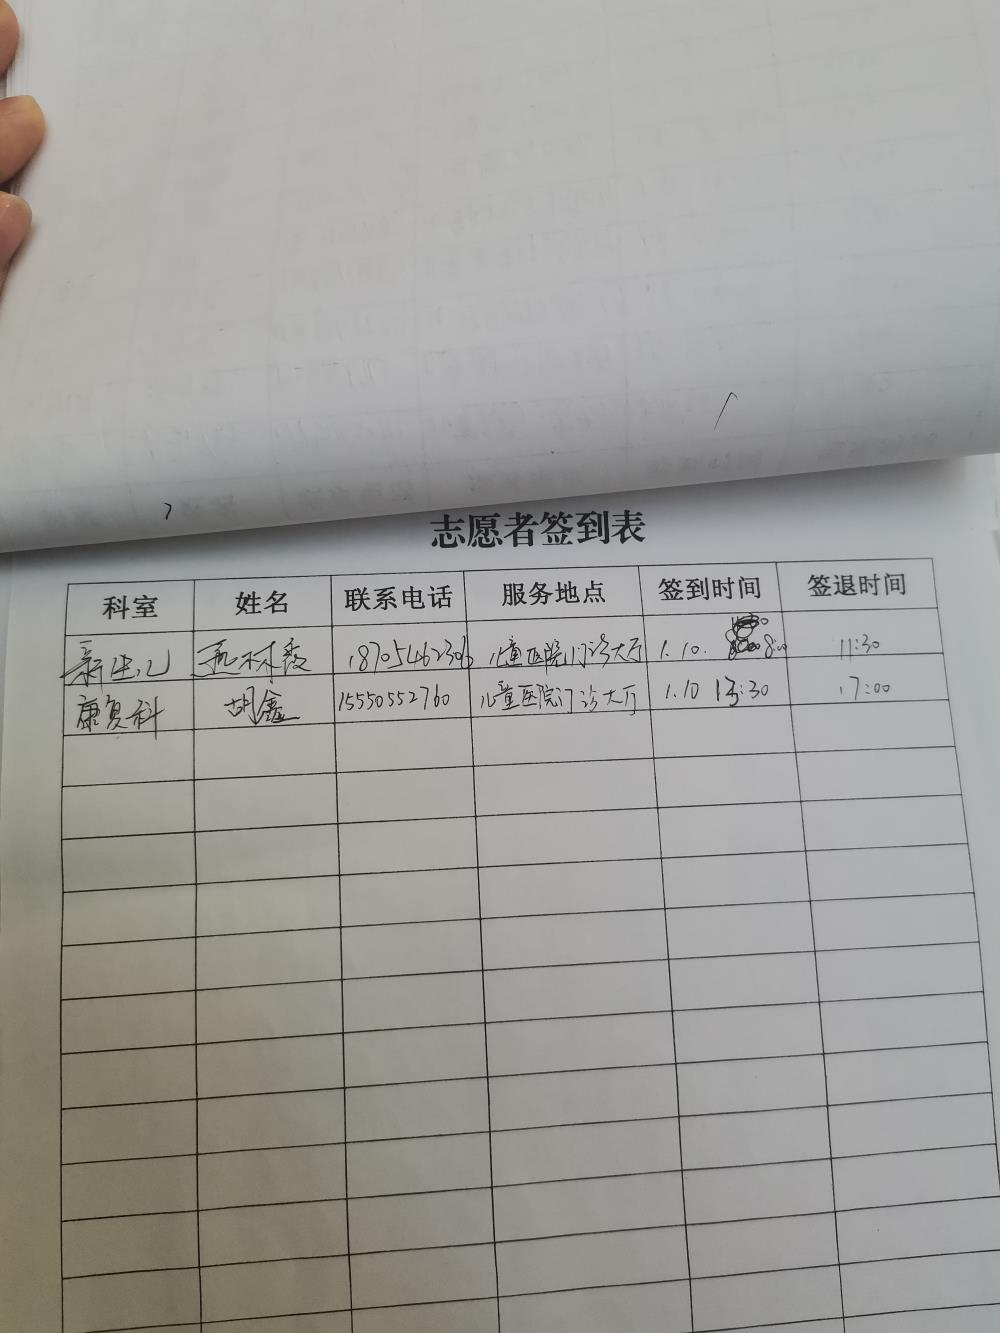 志愿者签到表
科室 姓名 联系电话 服务地点 签到时间 签退时间
新生儿 18705462306 儿童医院门诊大厅 1.10. 8:00 11:30
康复科 胡鑫 15550552760 儿童医院门诊大厅 1.10 13:30 17:00